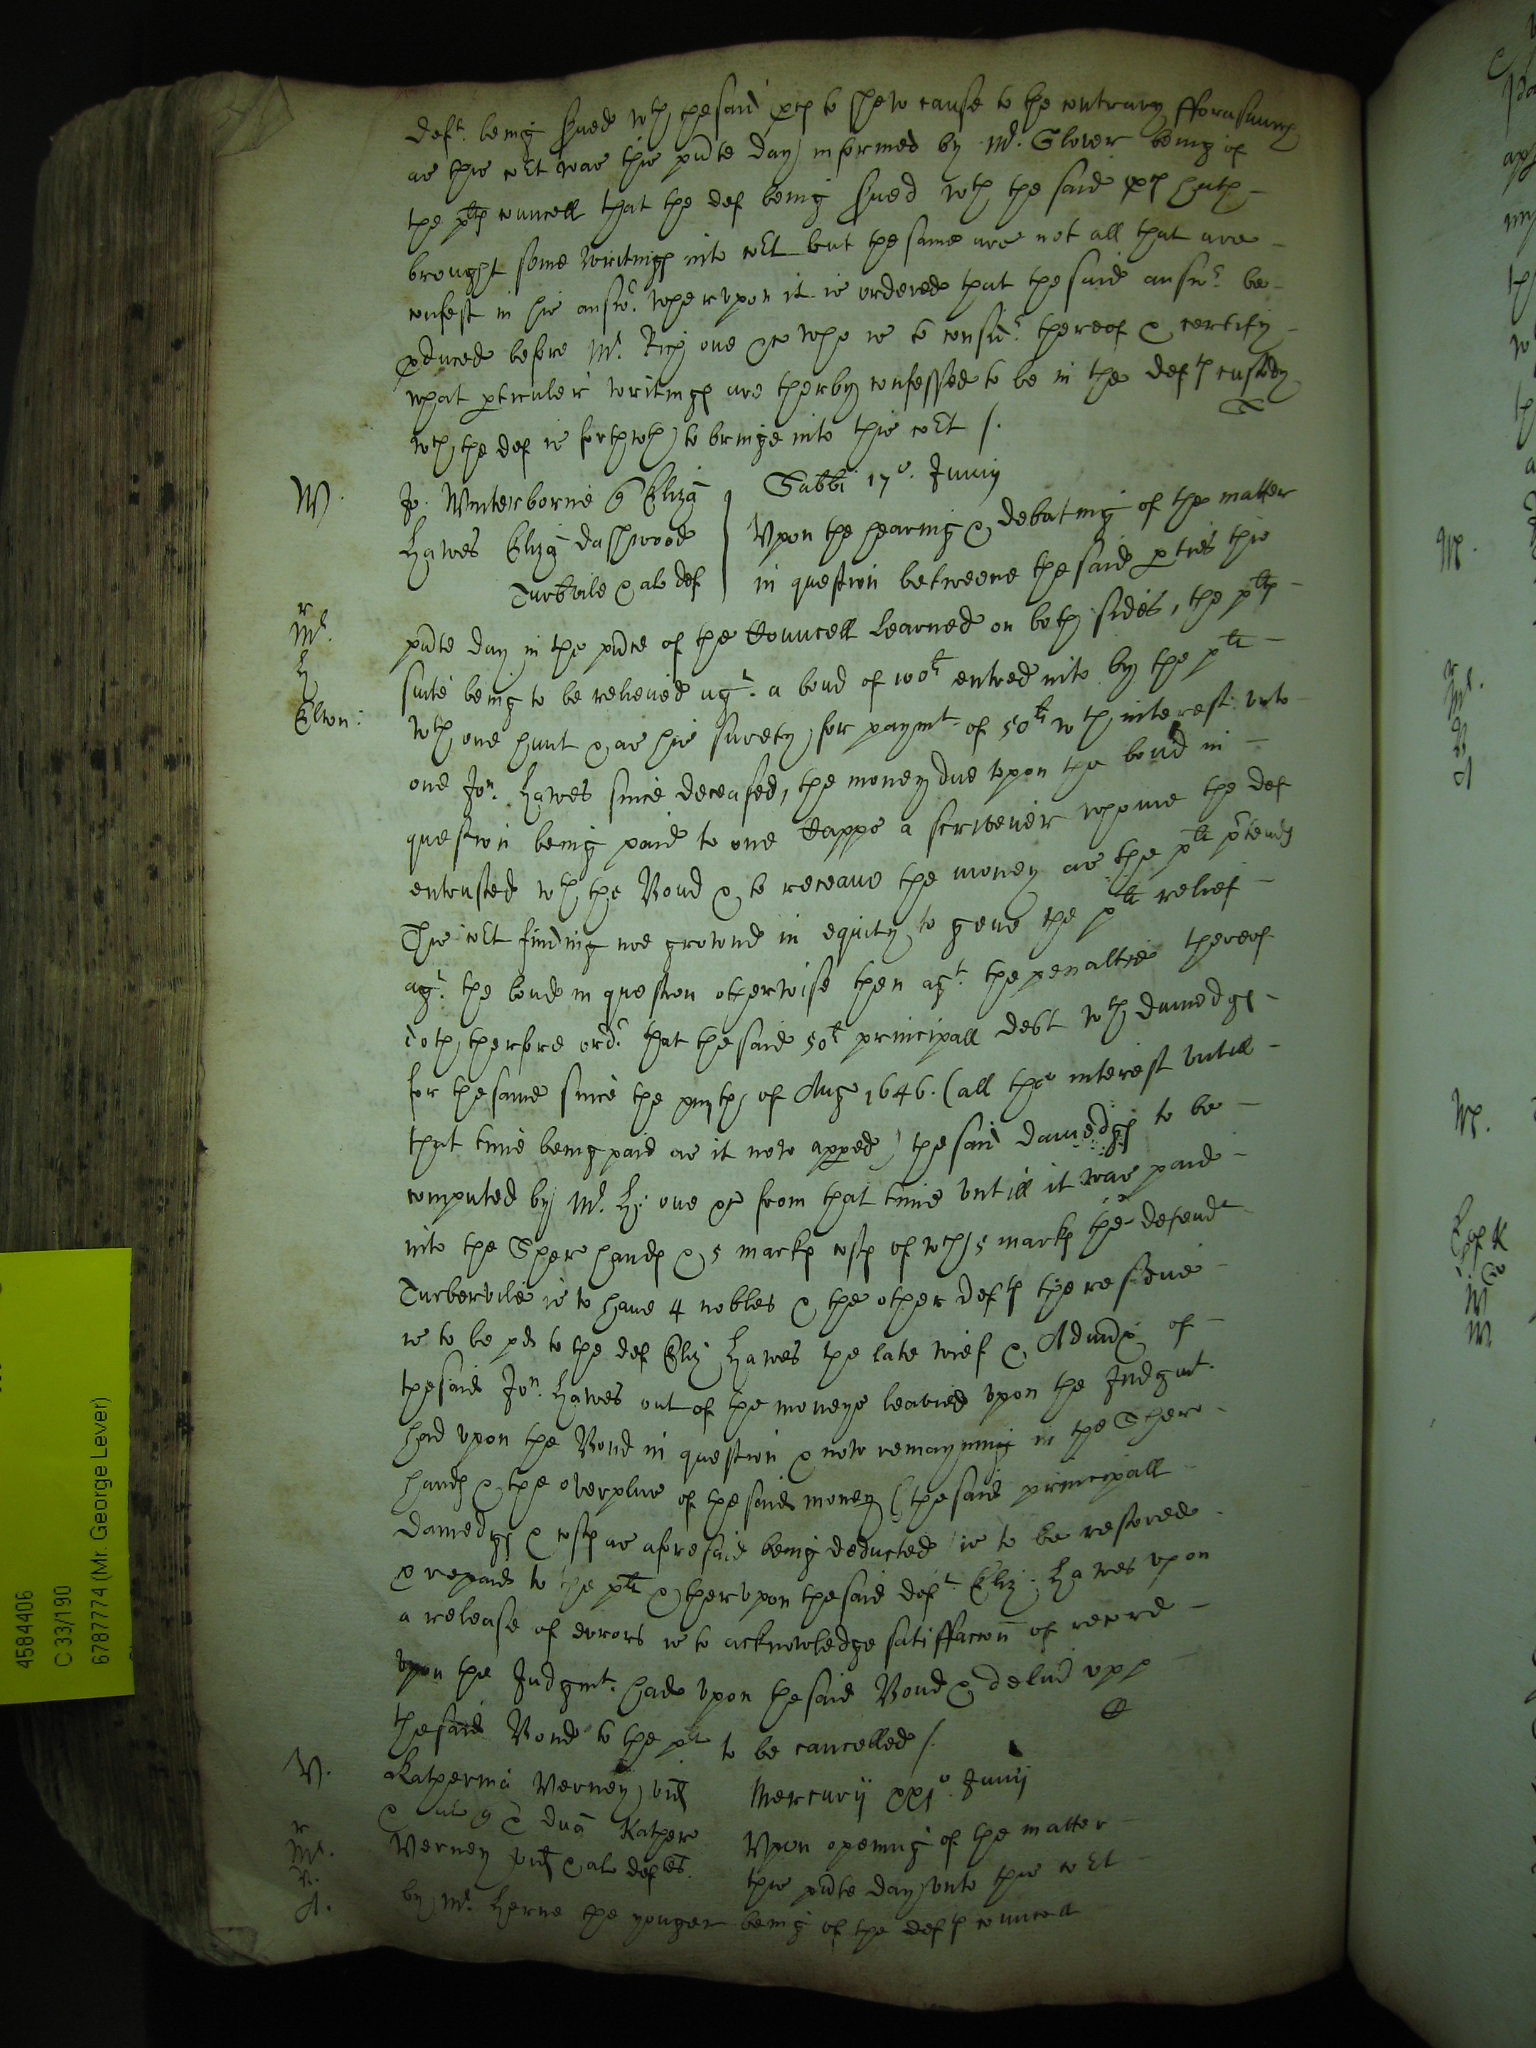 deft. being served wth the said pces to shew cause to the contrary fforasmuch
as this cort was this pnte day informed by Mr. Glover being of
the plts councell that the def being served wth the said pces hath
brought some writings into cort but the same are not all that are
confest in his answr. wherupon it is ordered that the said answr. be
pduced before Mr. Rich one &c who is to considr. thereof & certify
what pticuler writings are therby confessed to be in the defts custody
wch the def is forthwth to bringe into this cort /.
W. Jo: Winterborne q Eliza Sabbi 17o. Junij
Hawes Eliza dashwood Vpon the hearing & debating of the matter
Turbvile & al def in question betweene the said pties this
r
Mr. pnte day in the pnce of the Councell Learned on both sides, the plts
H suite being to be relieved agt. a bond of 100li entred into by the plt
Elton: wth one hunt & as his surety for paymt. of 50li wth interest vnto
one Jon. Hawes since deceased, the money due vpon the bond in
question being paid to one Cappe a scrivener whome the def
entrusted wth the Bond & to receaue the money as the plt ptends
This cort finding noe grownd in equity to geue the plt relief
agt. the bond in question otherwise then agt. the penaltie thereof
doth therfore ordr. that the said 50li principall debt wth damedges
for the same since the of Aug 1646. (all the interest vntill
that time being paid as it now apped) the said damedges to be
computed by Mr. H: one &c from that time vntill it was paid
into the Sher hands & 5 marks costs of wch 5 marks the defendt
Turbervile is to haue 4 nobles & the other defts the residue
is to be pd to the def Eliz Hawes the late wief & Admx of
the said Jon. Hawes out of the moneys leavied vpon the Judgmt.
had vpon the Bond in question & now remayning in the Sher
hands & the overplus of the said money (the said principall
damedges & costs as aforesaid being deducted is to be restored
& repaid to the plt & therupon the said deft. Eliz. Hawes vpon
a release of errors is to acknowledge satisfaccon of record
vpon the Judgmt. had vpon the said Bond & delivd vpp
the said Bond to the plt to be cancelled /.
V. Katherina Verney vid Mercurij xxjo. Junij
& al q dna Kather Vpon opening of the matter
r
Mr. Verney vid & al deftes. this pnte day vnto this cort
V.
A. by Mr. Herne the younger being of the defts councell
4584406
C 33/190
6787774 (Mr. George Lever)